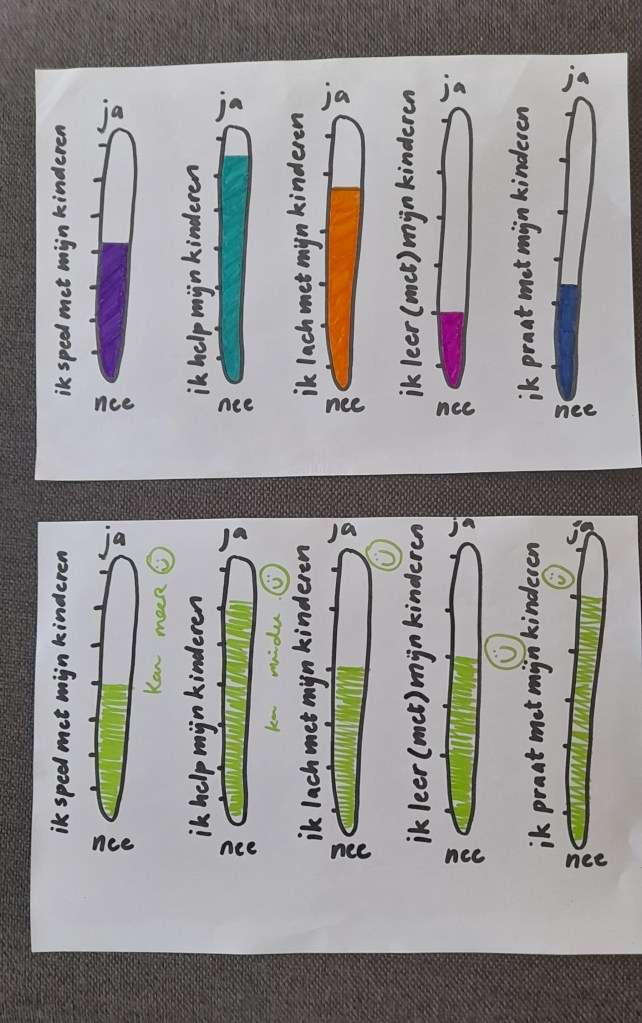 ik speel met mijn kinderen
nee
ja
ik help mijn kinderen
nee
ja
ik lach met mijn kinderen
nee
ja
ik leer (met) mijn kinderen
nee
ja
ik praat met mijn kinderen
nee
ja
ik speel met mijn kinderen
nee
ja
kan meer
ik help mijn kinderen
nee
ja
minder
ik lach met mijn kinderen
nee
ja
ik leer (met) mijn kinderen
nee
ja
ik praat met mijn kinderen
nee
ja